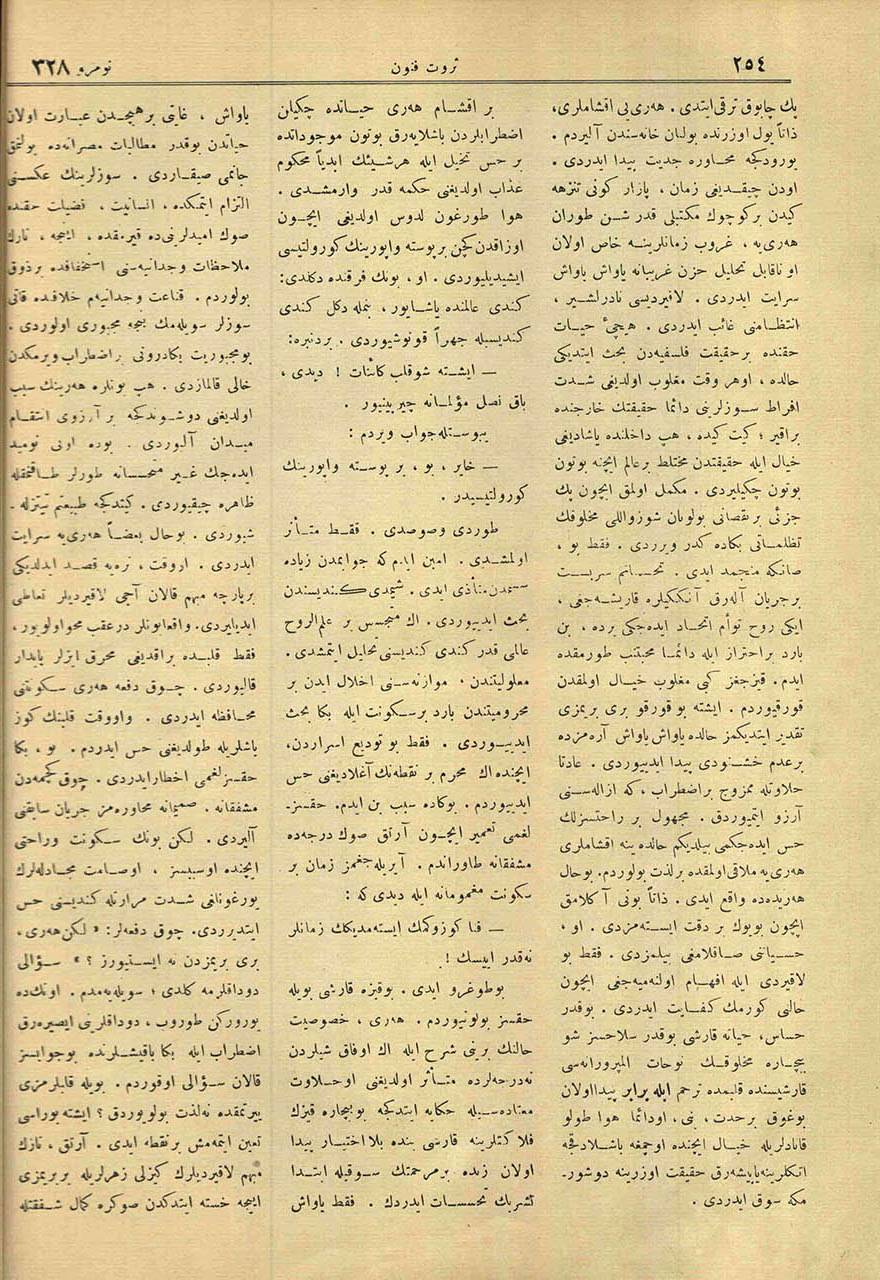 ٢٥٤
ثروت فنون
نومرو ٣٢٨
پك چابوق ترقی ایتدی . هه‌ری‌یی اقشاملری،
ذاتاً یول اوزرنده بولنان خانه‌سندن آلیردم .
یورودكجه محاوره جدیت پیدا ایدردی .
اودن چیقدیغی زمان ، پازار كونی تنزهه
كیدن بركوچوك مكتبلی قدر شن طوران
هه‌ری‌یه ، غروب زمانلرینه خاص اولان
او ناقابل تحلیل حزن غریبانه یاواش یاواش
سرایت ایدردی . لاقیردیسی نادرلشیر ،
انتظامنی غائب ایدردی . هیچیٔ حیات
حقنده برحقیقت فلسفیه‌دن بحث ایتدیكی
حالده ، اوهر وقت مغلوب اولدیغی شدت
افراط سوزلرینی دائما حقیقتك خارجنده
براقیر ؛ كیت كیده ، هپ داخلنده یاشادیغی
خیال ایله حقیقتدن مختلط برعالم ایچنه بوتون
بوتون چكیلیردی . مكمل اولمق ایچون پك
جزئی برنقصانی بولونان شوزواللی مخلوقك
تظلماتی بكاده كدر ویرردی . فقط بو ،
صانكه منجمد ایدی . تحساتم سربست
برجریان آله‌رق آنككیلره قاریشه‌جغی ،
ایكی روح توأم اتحاد ایده‌جكی یرده ، بن
بارد براحتراز ایله دائما مجتنب طورمقده
ایدم . قیزجغز كبی مغلوب خیال اولمقدن
قورقیوردم . ایشته بو قورقو بری بریمزی
تقدیر ایتدیكمز حالده یاواش یاواش آره‌مزده
برعدم خشنودی پیدا ایدییوردی . عادتا
حلاوتله ممزوج براضطراب ، كه ازاله‌سنی
آرزو ایتمیوردق . مجهول بر راحتسزلك
حس ایده‌جكمی بیلدیكم حالده ینه اقشاملری
هه‌ری‌یه ملاقی اولمقده برلذت بولوردم. بوحال
هه‌ریده‌ده واقع ایدی . ذاتاً بونی آكلامق
ایچون بویوك بر دقت ایسته‌مزدی . او ،
حسیاتنی صاقلامغی بیلمزدی . فقط بو
لاقیردی ایله افهام اولنه‌میه‌جغی ایچون
حالنی كورمك كفایت ایدردی . بوقدر
حساس، حیاته قارشی بوقدر سلاحسز شو
بیچاره مخلوقك نوحات المپرورانه‌سی
قارشیسنده قلبمده ترحم ایله برابر پیدااولان
بوغوق برحدت ، بنی ، اودائما هوا طولو
قنادلریله خیال ایچنده اوچمغه باشلادقجه
اتكلرینه یاپیشه‌رق حقیقت اوزرینه دوشور-
مكه سوق ایدردی .
بر اقشام هه‌ری حیاتده چكیلن
اضطرابلردن باشلایه‌رق بوتون موجوداتده
بر حس تخیل ایله هرشیئك ابدیاً محكوم
عذاب اولدیغنی حكمه قدر وارمشدی .
هوا طورغون لدوس اولدیغی ایچون
اوزاقدن كچن برپوسته واپورینك كورولتیسی
ایشیدیلیوردی . او ، بونك فرقنده دكلدی:
كندی عالمنده یاشایور ، بنمله دكل كندی
كندیسیله جهراً قونوشیوردی . بردنبره:
— ایشته شوقلب كائنات ! دیدی ،
باق نصل مؤلمانه چیرپینیور .
یبوستله‌جواب ویردم :
— خایر ، بو ، بر پوسته واپورینك
كورولتیسیدر .
طوردی وصوصدی . فقط متأثر
اولمشدی . امین ایدم كه جوابمدن زیاده
متأذی ایدی . شیمدی كندیسندن
بحث ایدییوردی . اك متجسس بر علم‌الروح
عالمی قدر كندی كندیسنی تحلیل ایتمشدی .
معلولیتندن ، موازنه‌سنی اخلال ایدن بر
محرومیتندن بارد برسكونت ایله بكا بحث
ایدییوردی . فقط بو تودیع اسراردن،
ایچنده‌اك محرم بر نقطه‌نك آغلادیغنی حس
ایدییوردم . بوكاده سبب بن ایدم. حقسز-
لغمی تعمیر ایچون آرتق صوك درجه‌ده
مشفقانه طاوراندم . آیریله‌جغمز زمان بر
سكونت مغمومانه ایله دیدی كه :
— فنا كوزوكمك ایسته‌مدیككز زمانلر
نه‌قدر اییسك !.
بوطوغرو ایدی . بوقیزه قارشی بویله
حقسز بولونیوردم . هه‌ری ، خصوصیت
حالنك برینی شرح ایله اك اوفاق شیلردن
نه‌درجه‌لرده متأثر اولدیغنی اوحلاوت
معتاده‌سیله حكایه ایتدكجه بوبیچاره قیزك
فلاكتلرینه قارشی بنده بلااختیار پیدا
اولان زبده برمرحمتك سوقیله ابتدا
تشریك تحسسات ایدردك . فقط یاواش
یاواش ، غایتی برهیچدن عبارت اولان
حیاتدن بوقدر مطالبات مصرانه‌ده بولنمق
جانمی صیقاردی . سوزلرینك عكسنی
التزام ایتمكده ، انسانیت ، فضیلت حقنده
صوك امیدلرینی‌ده قیرمقده ، اینجه ، نازك
ملاحظات وجدانیه‌سنی استخفافده برذوق
بولوردم . قناعت وجدانیه‌م خلافنده قاتی
سوزلر سویله‌مك بنجه مجبوری اولوردی .
بومجبوریت بكادرونی براضطراب ویرمكدن
خالی قالمازدی . هپ بونلره هه‌رینك سبب
اولدیغنی دوشوندكجه بر آرزوی انتقام
میدان آلیوردی . بوده اونی نومید
ایده‌جك غیر متحسسانه طورلر طاقنمقله
ظاهره چیقیوردی . كیتدكجه طبیعتم تیتزله-
شیوردی . بوحال بعضاً هه‌ری‌یه سرایت
ایدردی . اووقت ، نره‌یه قصد ایدلدیكی
برپارچه مبهم قالان آجی لاقیردیلر تعاطی
ایدیلیردی. واقعابونلر درعقب محواولویور،
فقط قلبده براقدیغی محرق ایزلر پایدار
قالیوردی . چوق دفعه هه‌ری سكوتنی
محافظه ایدردی . واووقت قلبنك كوز
یاشلریله طولدیغنی حس ایدردم . بو ، بكا
حقسزلغمی اخطارایدردی . چوق كچمه‌دن
مشفقانه . صمیمانه محاوره‌مز جریان سابقنی
آلیردی . لكن بونك سكونت وراحتی
ایچنده اوسبسز ، اوصامت مجادله‌لرك
یورغونلغی شدت مرارتله كندیسنی حس
ایتدیرردی. چوق دفعه‌لر: « لكن هه‌ری،
بری بریمزدن نه ایستیورز ؟ » سؤالی
دوداقلرمه كلدی ؛ سویله‌یه‌مدم . اونك‌ده
یوروركن طوروب ، دوداقلرینی ایصیره‌رق
اضطراب ایله بكا باقیشلرنده بوجوابسز
قالان سؤالی اوقوردم . بویله قلبلرمزی
ییرتمقده نه‌لذت بولویوردق ؟ ایشته بوراسی
تعین ایتمه‌مش برنقطه ایدی . آرتق ، نازك
مبهم لاقیردیلرك كیزلی زهرلریله بربریمزی
اییجه خسته ایتدكدن صوكره كمال شفقتله